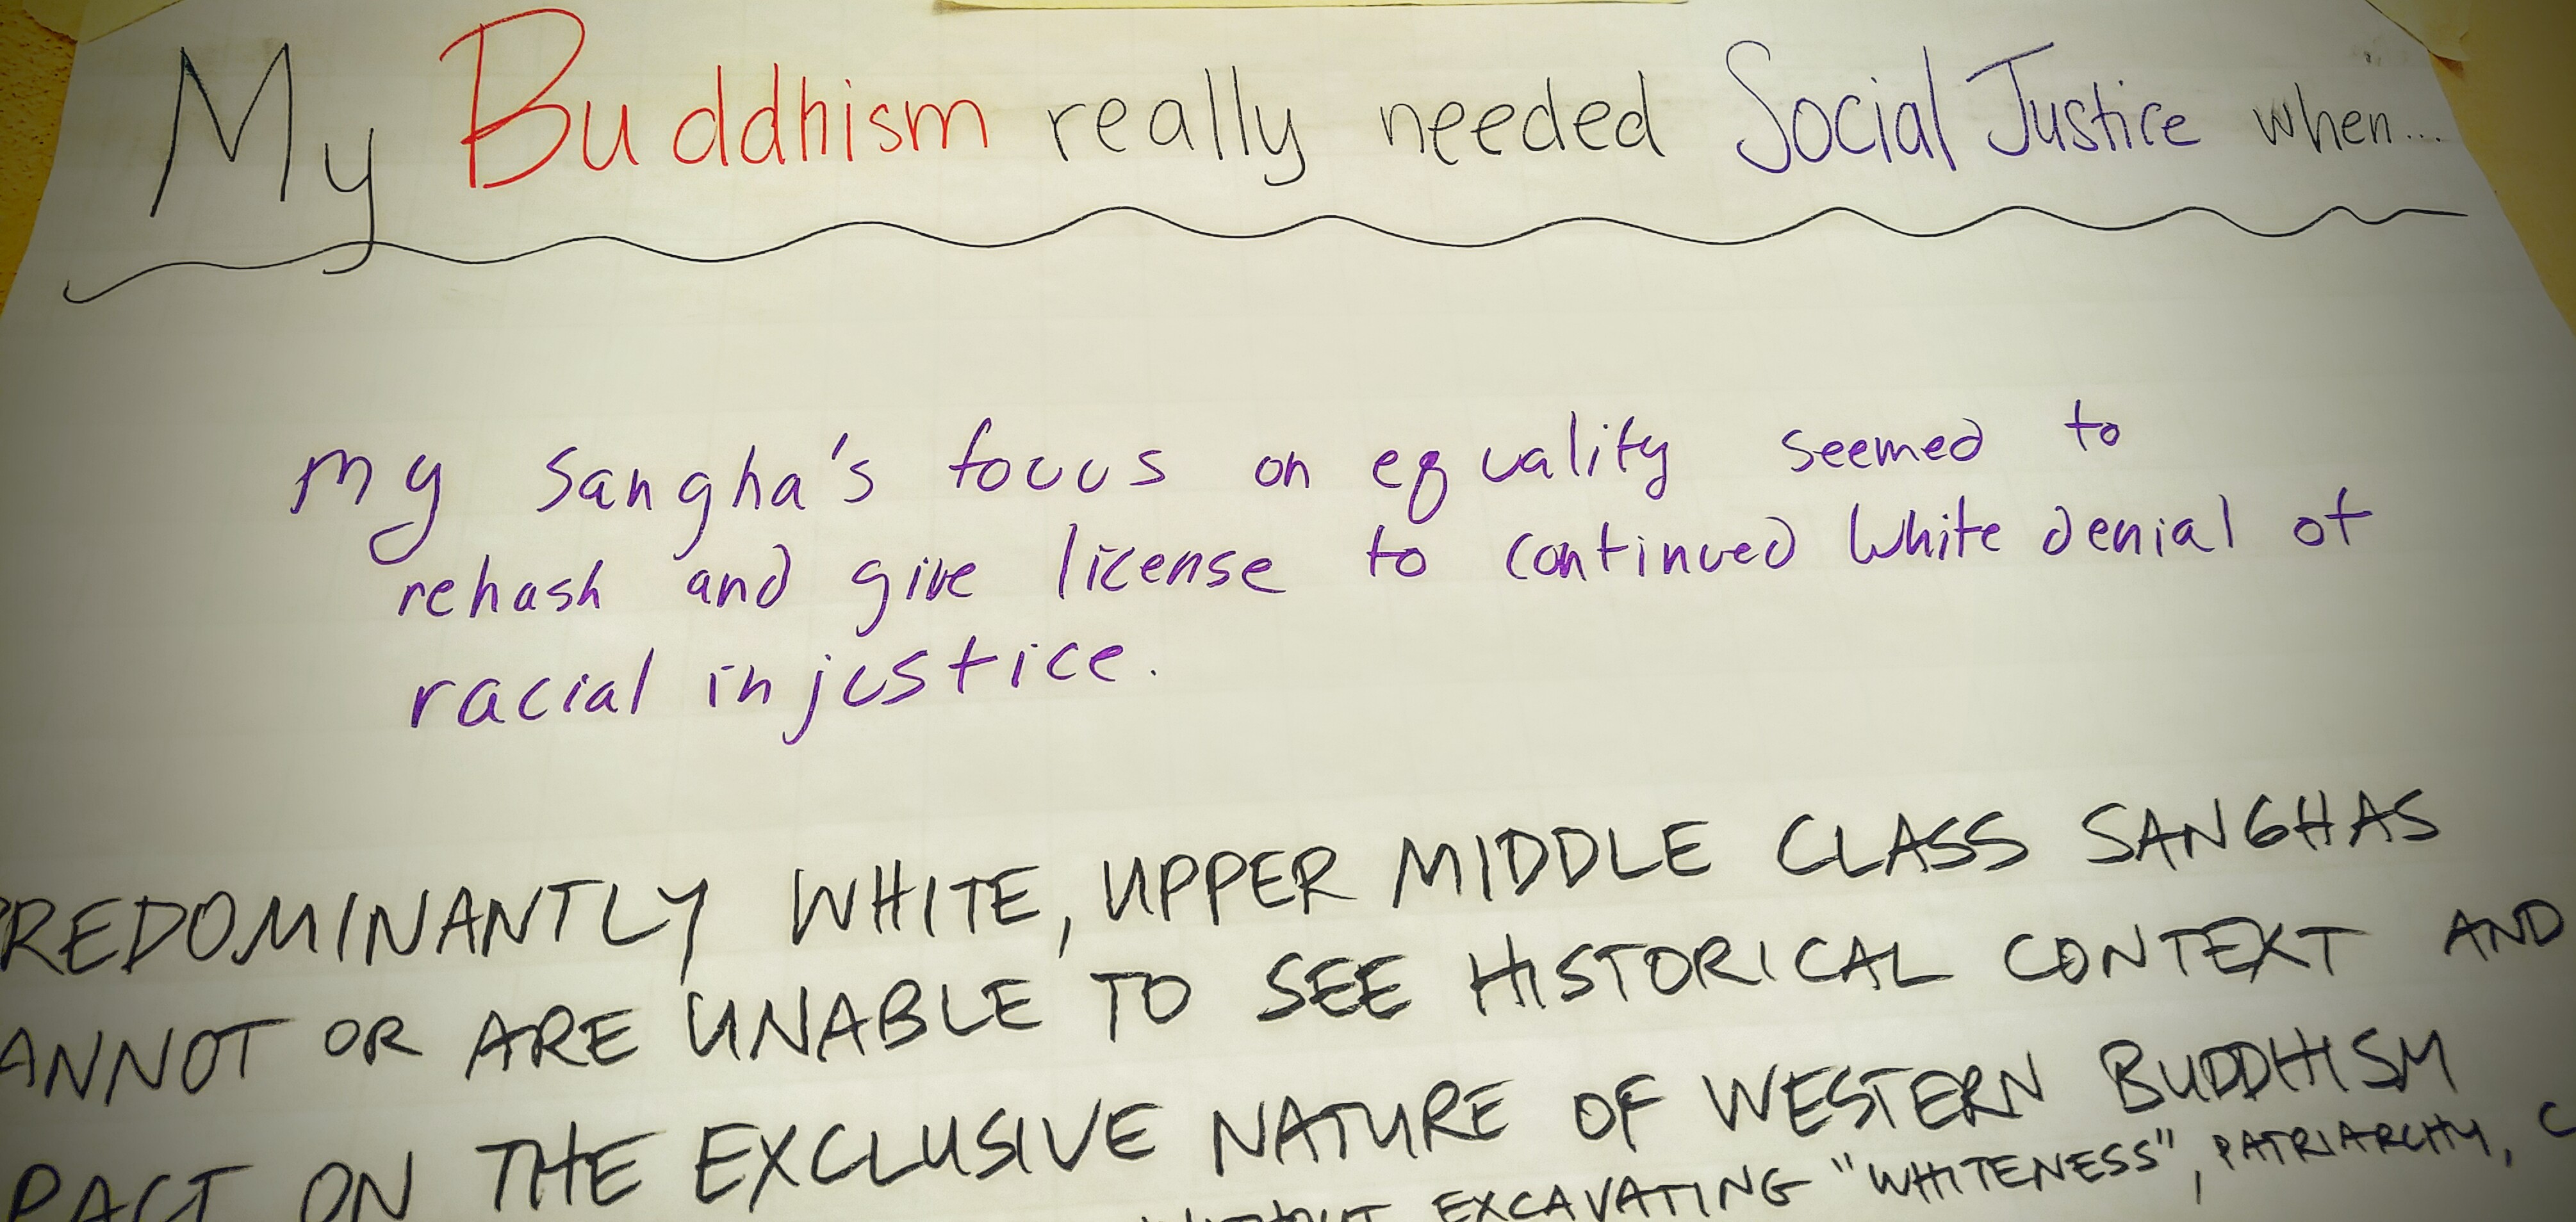 My Buddhism really needed Social Justice when...
my sangha's focus on equality seemed to
rehash and give license to continued White denial of
racial injustice.
PREDOMINANTLY WHITE, UPPER MIDDLE CLASS SANGHAS
ANNOT OR ARE UNABLE TO SEE HISTORICAL CONTEXT AND
PACT ON THE EXCLUSIVE NATURE OF WESTERN BUDDHISM
WITHOUT EXCAVATING "WHITENESS", PATRIARCHY, C